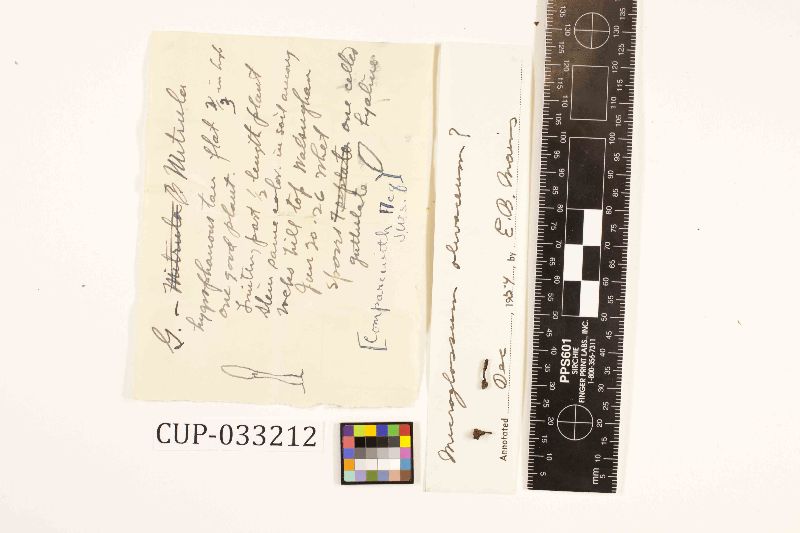 G. – Mitrula B Mitrula
hygrophanous tan flat in
one good plant.
Fruiting part ½ length plant
Stem same color. in soil among
rocks hill top
Jan 20. 26 Whet
Spores one celled
guttulate hyaline
[Compare with
Microglossum olivaceum?
Annotated Dec , 1954 by E.B. Mains
CUP-033212
PPS601
SIRCHIE
FINGER PRINT LABS., INC.
1-800-356-7311
mm
5 10 15 20 25 30 35 40 45 50 55 60 65 70 75 80 85 90 95 100 105 110 115 120 125 130 135